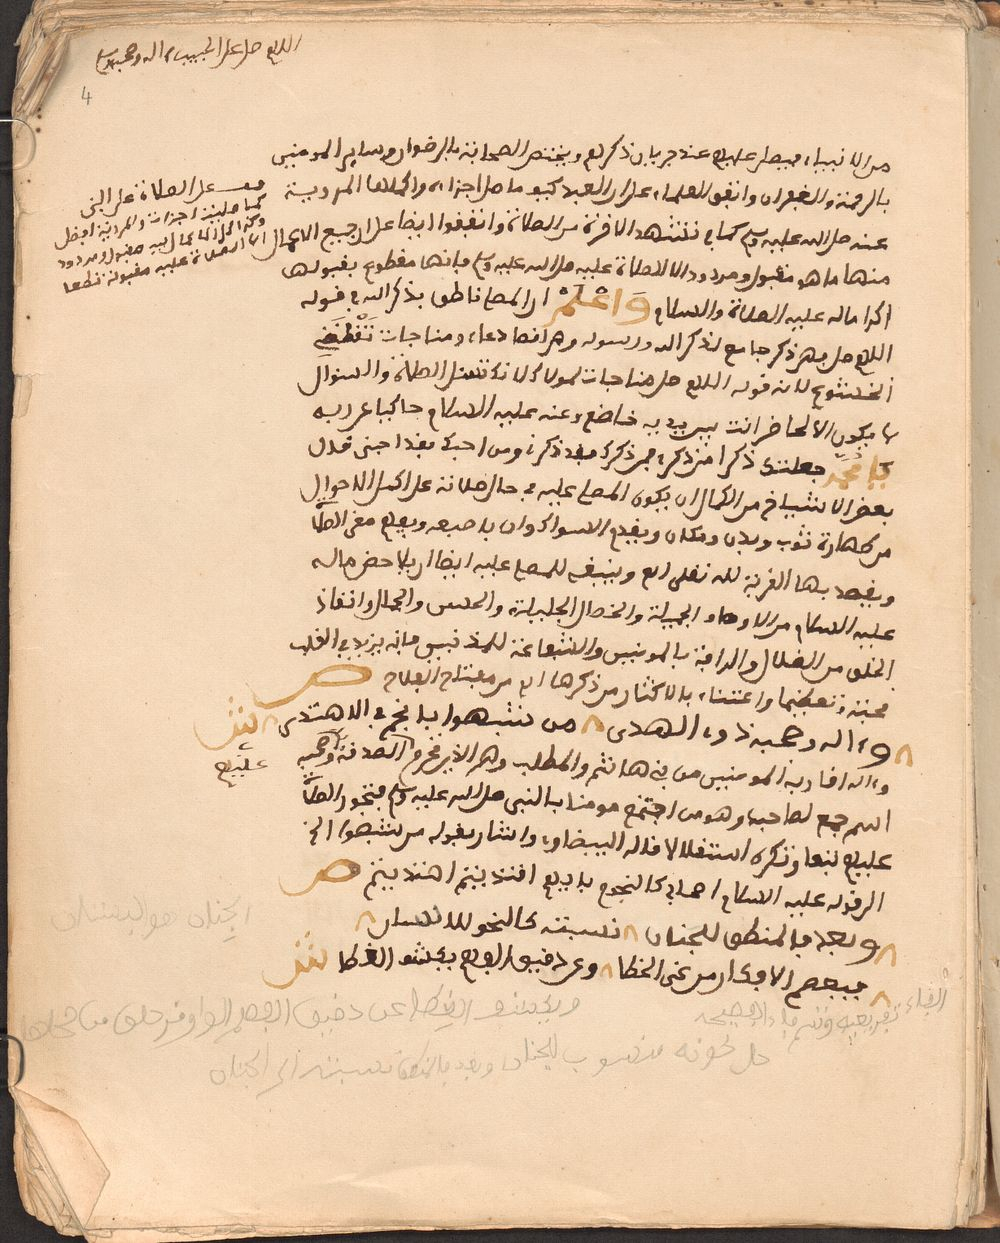 اللهم صل على الحبيب واله وصحبه وسلم
4
من الانبياء فيصلى عليهم عند جريان ذكرهم ويختص الصحابة بالرضوان وساير المومنين
بالرحمة والغفران واتفق العلماء على ان العبد كيف ما صلى اجزاه واكملها المروية
عنه صلى الله عليه وسلم كما في تشهد الاخرة من الصلاة واتفقوا ايضا على ان جميع الاعمال
منها ما هو مقبول ومردود الا الصلاة عليه صلى الله عليه وسلم فانها مقطوع بقبولها
اكراما له عليه الصلاة والسلام واعلم ان المصلي ناطق بذكر الله في قوله
اللهم صل فهو ذكر جامع لذكر الله ورسوله وهو ايضا دعاء ومناجات تقتضي
الخشوع لان قوله اللهم صل مناجات لمولاك لانك تسئل الصلاة والسؤال
لا يكون الا لحاضر انت بين يديه خاضع وعنه عليه السلام حاكيا عن ربه
يا محمد جعلتك ذكرا من ذكري فمن ذكرك فقد ذكرني ومن احبك فقد احبني قال
بعض الاشياخ من الكمال ان يكون المصلي عليه في حال صلاته على اكمل الاحوال
من طهارة ثوب وبدن ومكان ويقدم السواك ولو باصبعه ويفهم معنى الصلاة
ويقصد بها القربة لله تعالى اهـ وينبغي للمصلي عليه ايضا ان يلاحظ ماله
عليه السلام من الاوصاف الجميلة والخصال الجليلة والحسن والجمال وانقاذ
الخلق من الضلال والرافة بالمومنين والشفاعة للمذنبين فانه يزيد في القلب
محبة وتعظيما واعتناء بالاكثار من ذكرها اهـ من مفتاح الفلاح ص
واله وصحبه ذوي الهدى من شبهوا بانجم في الاهتدى ش
واله اقاربه المومنين من بني هاشم والمطلب وهم الذين تحرم الصدقة عليهم وصحبه
اسم جمع لصاحبه وهو من اجتمع مومنا بالنبي صلى الله عليه وسلم فتجوز الصلاة
عليهم تبعا وتكره استقلالا قاله البيضاوي واشار بقوله من شبهوا الخ
الى قوله عليه السلام اصحابي كالنجوم بايهم اقتديتم اهتديتم ص
وبعد فالمنطق للجنان نسبته كالنحو للسان
فيعصم الافكار من غي الخطا وعن دقيق الفهم يكشف الغطا ش
على الصلاة على النبي
كما صليت اجزات والمروية افضل
وكذا ان الاعمال فيها مقبول ومردود
الا الصلاة عليه مقبولة قطعا
الجنان هو
ويكشف الغطا عن دقيق الفهم
منصوب للجنان وبعد فالمنطق نسبته الى الجنان